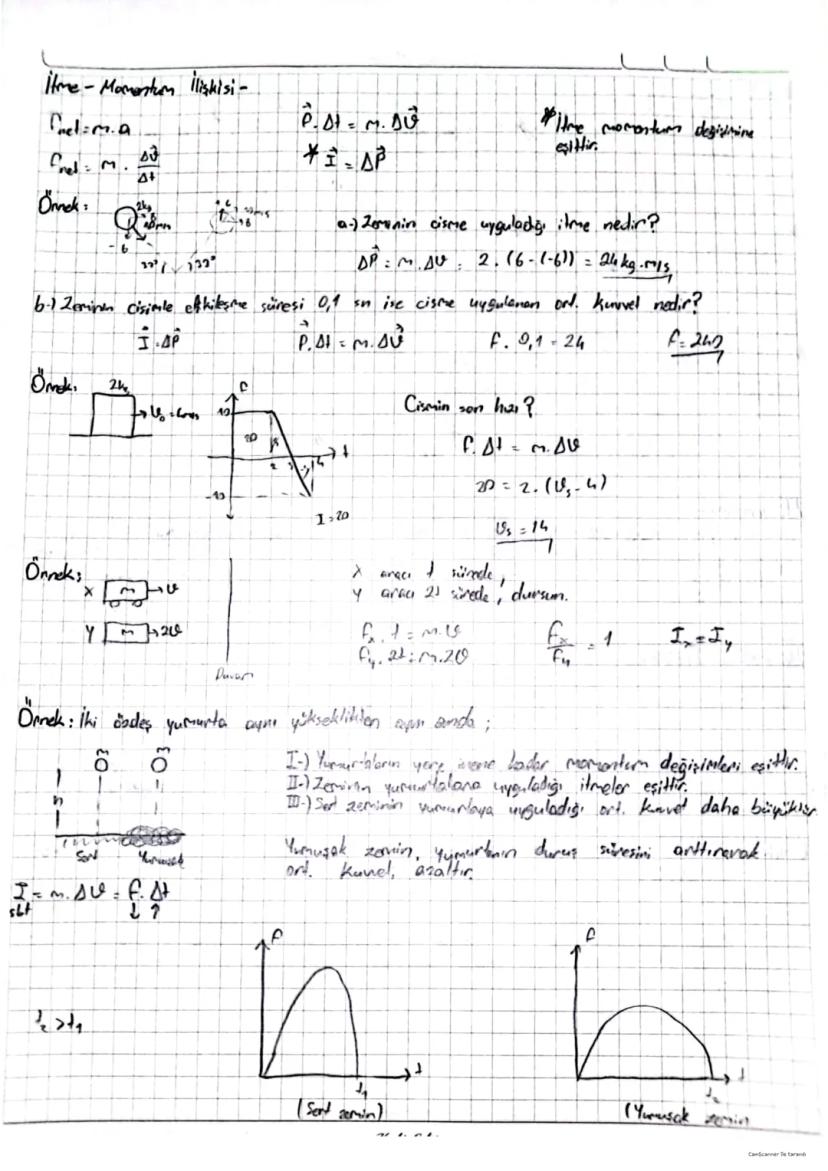 İtme - Momentum İlişkisi -
Fnet = m.a
F⃗.Δt = m.Δϑ⃗
* İtme momentum değişimine
eşittir.
Fnet = m. Δϑ⃗/Δt
* I⃗ = ΔP⃗
Örnek:
2kg
-6
6
37° 37°
a-) Zeminin cisme uyguladığı itme nedir?
ΔP⃗ = m.Δϑ = 2.(6-(-6)) = 24 kg.m/s
b-) Zeminin cisimle etkileşme süresi 0,1 sn ise cisme uygulanan ort. kuvvet nedir?
I⃗ = ΔP⃗
F⃗.Δt = m.Δϑ⃗
F. 0,1 = 24
F = 240
Örnek:
2kg
ϑ₀ = 4m/s
F
10
20
2
4
t
-10
I = 20
Cismin son hızı?
F.Δt = m.Δϑ
20 = 2.(ϑs - 4)
ϑs = 14
Örnek:
X m ϑ
Y m 2ϑ
Duvar
X aracı t sürede,
Y aracı 2t sürede, dursun.
Fx. t = m.ϑ
Fy. 2t = m.2ϑ
Fx/Fy = 1
Ix = Iy
Örnek: İki özdeş yumurta aynı yükseklikten aynı anda ;
m m
h
Sert Yumuşak
I-) Yumurtaların yere inene kadar momentum değişimleri eşittir.
II-) Zeminin yumurtalara uyguladığı itmeler eşittir.
III-) Sert zeminin yumurtaya uyguladığı ort. kuvvet daha büyüktür.
Yumuşak zemin, yumurtanın duruş süresini arttırarak
ort. kuvvet, azaltır.
I = m.Δϑ = F. Δt
sbt ↓ ↑
t₂ > t₁
F
t₁
t
(Sert zemin)
F
t₂
t
(Yumuşak zemin
CamScanner ile tarandı